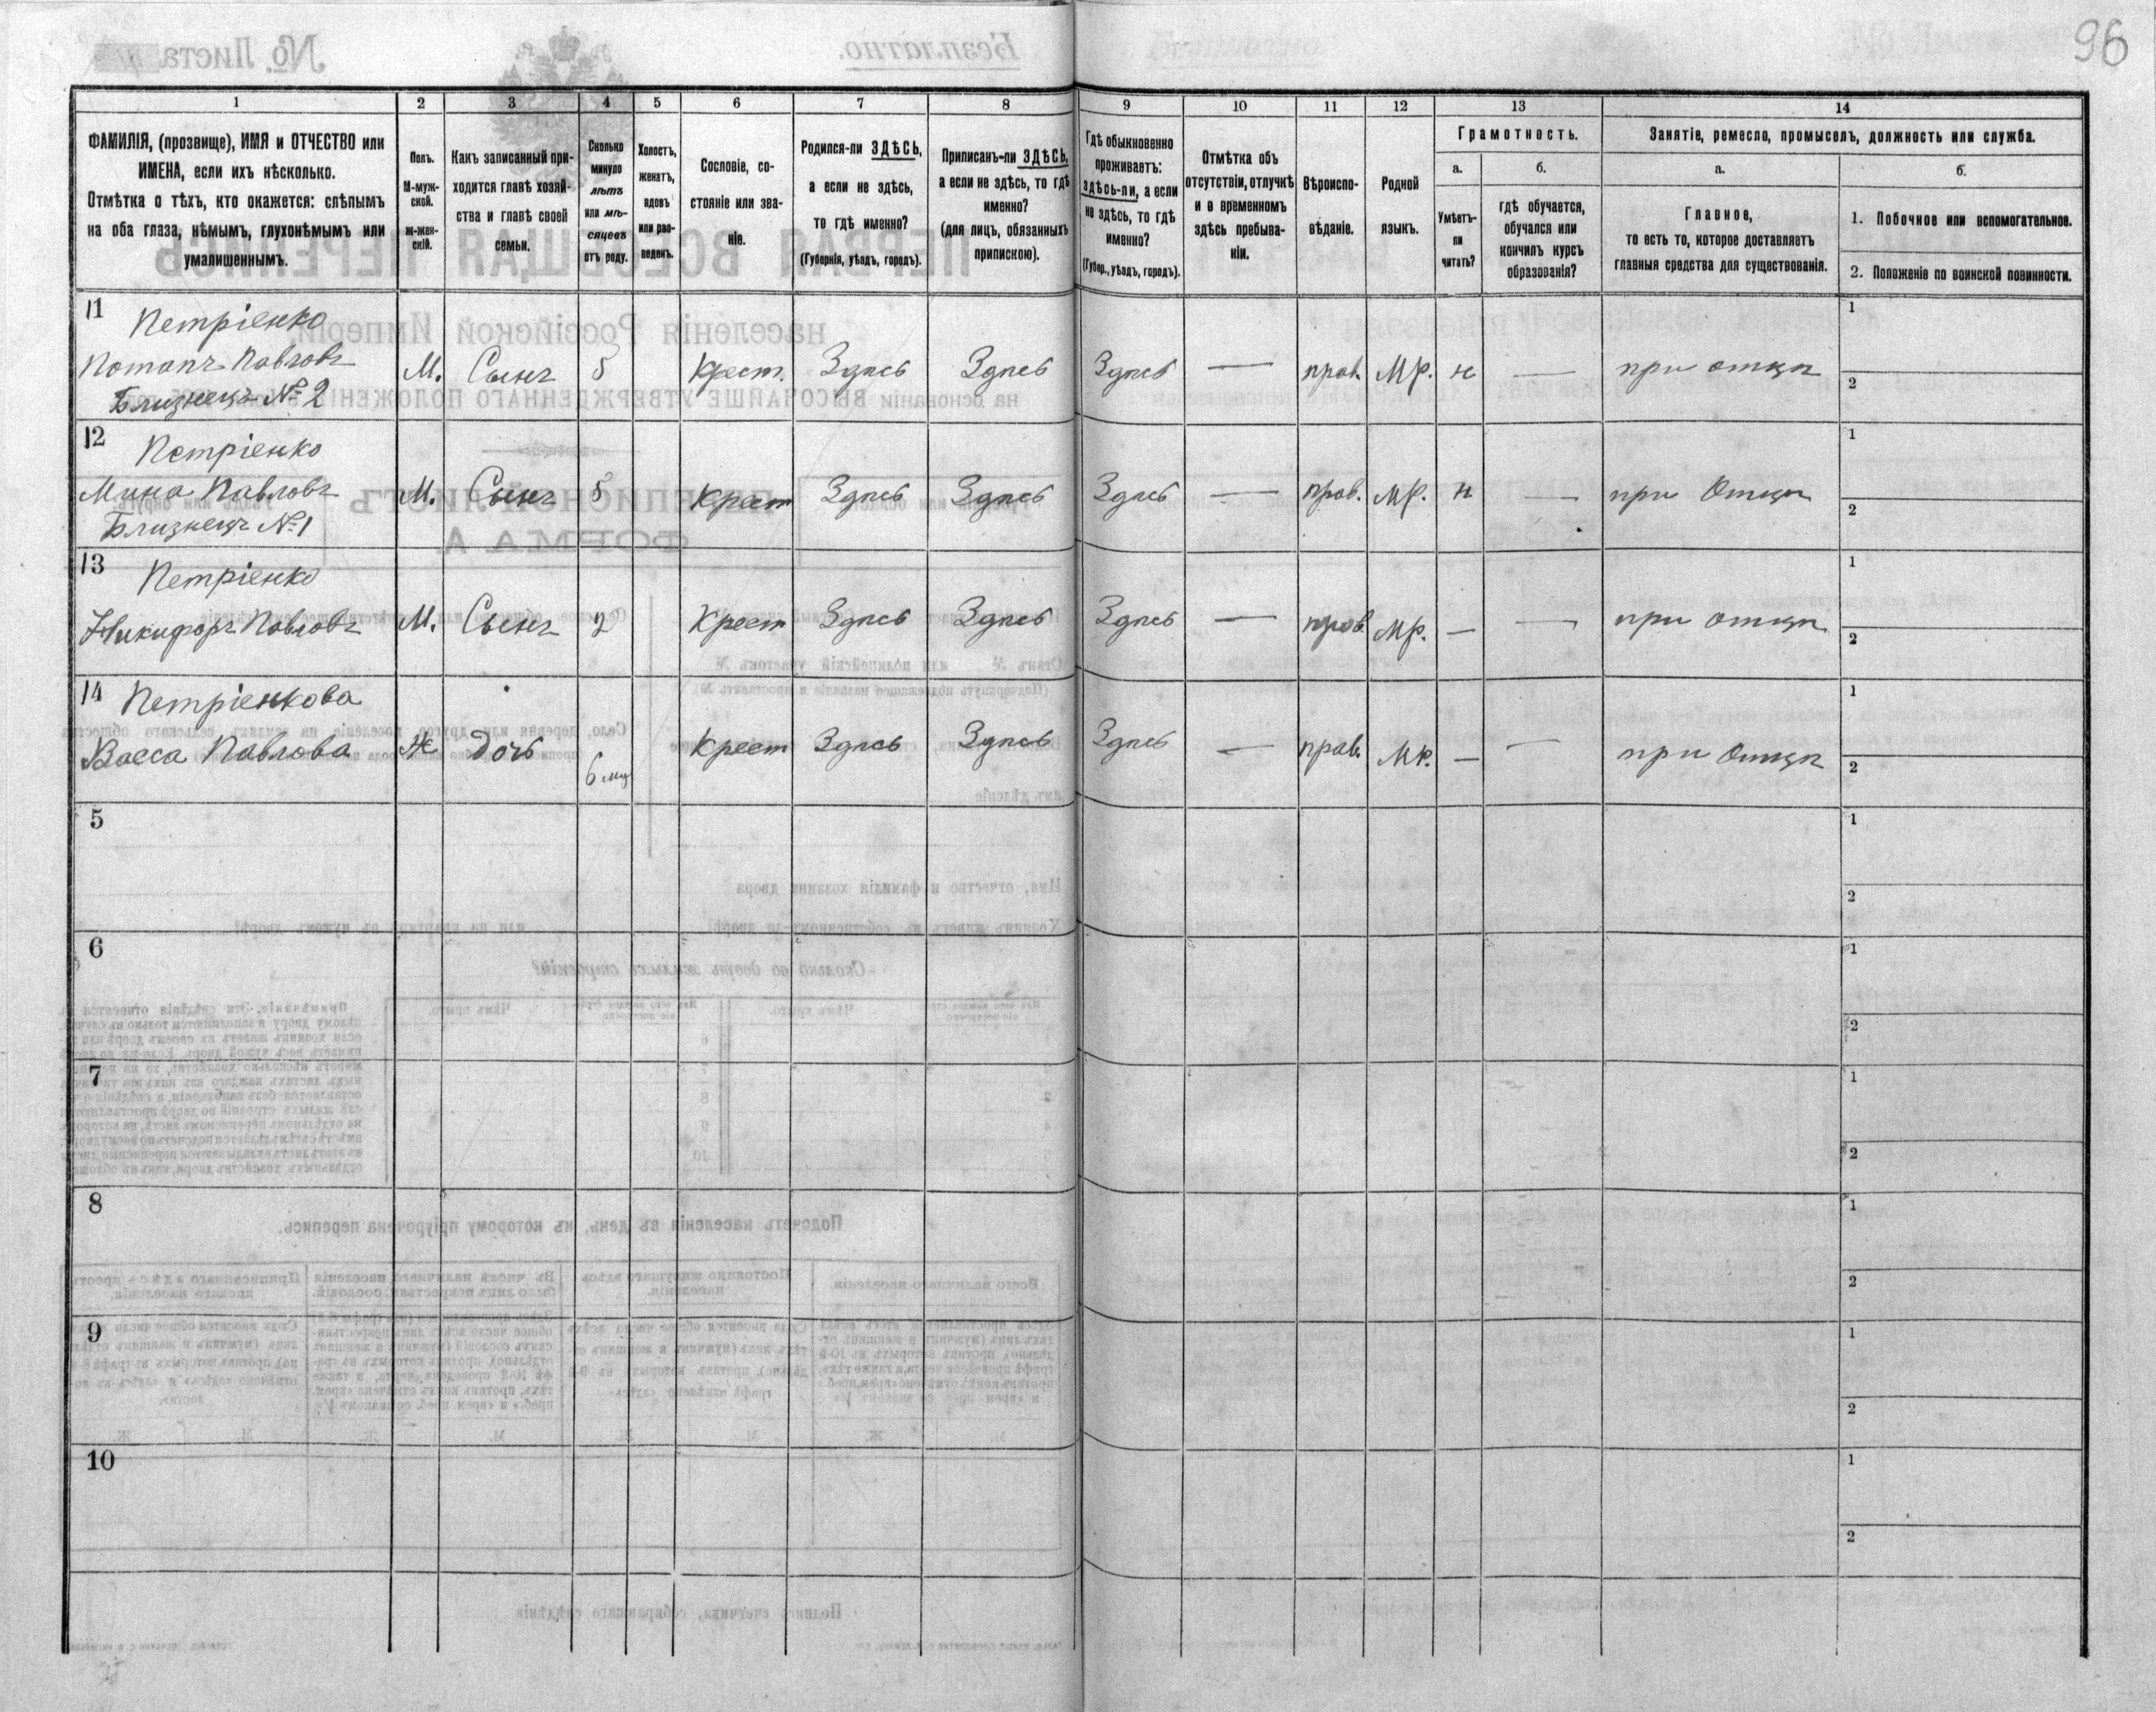 96
1
2
3
4
5
6
7
8
9
10
11
12
13
14
ФАМИЛІЯ, (прозвище), ИМЯ и ОТЧЕСТВО или
ИМЕНА, если ихъ нѣсколько.
Отмѣтка о тѣхъ, кто окажется: слѣпымъ
на оба глаза, нѣмымъ, глухонѣмымъ или
умалишеннымъ.
Полъ.
М-муж-
ской.
ж-жен-
скій.
Какъ записанный при-
ходится главѣ хозяй-
ства и главѣ своей
семьи.
Сколько
минуло
лѣтъ
или мѣ-
сяцевъ
отъ роду.
Холостъ,
женатъ,
вдовъ
или раз-
веденъ.
Сословіе, со-
стояніе или зва-
ніе.
Родился-ли ЗДѢСЬ,
а если не здѣсь,
то гдѣ именно?
(Губернія, уѣздъ, городъ).
Приписанъ-ли ЗДѢСЬ,
а если не здѣсь, то гдѣ
именно?
(для лицъ, обязанныхъ
припискою).
Гдѣ обыкновенно
проживаетъ:
здѣсь-ли, а если
не здѣсь, то гдѣ
именно?
(Губер., уѣздъ, городъ).
Отмѣтка объ
отсутствіи, отлучкѣ
и о временномъ
здѣсь пребыва-
ніи.
Вѣроиспо-
вѣданіе.
Родной
языкъ.
Грамотность.
а.
Умѣетъ-
ли
читать?
б.
гдѣ обучается,
обучался или
кончилъ курсъ
образованія?
Занятіе, ремесло, промыселъ, должность или служба.
а.
Главное,
то есть то, которое доставляетъ
главныя средства для существованія.
б.
1. Побочное или вспомогательное.
2. Положеніе по воинской повинности.
11 Петріенко
Потапъ Павловъ М. Сынъ 5 Крест. Здѣсь Здѣсь Здѣсь — прав. Мр. н — при отцѣ
Близнецъ № 2
1
2
12 Петріенко
Мина Павловъ М. Сынъ 5 Крест Здѣсь Здѣсь Здѣсь — прав. Мр. н — при Отцѣ
Близнецъ № 1
1
2
13 Петріенко
Никифоръ Павловъ М. Сынъ 2 Крест Здѣсь Здѣсь Здѣсь — прав Мр. — — при отцѣ
1
2
14 Петріенкова
Васса Павлова Ж Дочь 6 мц Крест Здѣсь Здѣсь Здѣсь — прав. Мр. — — при Отцѣ
1
2
5
1
2
6
1
2
7
1
2
8
1
2
9
1
2
10
1
2